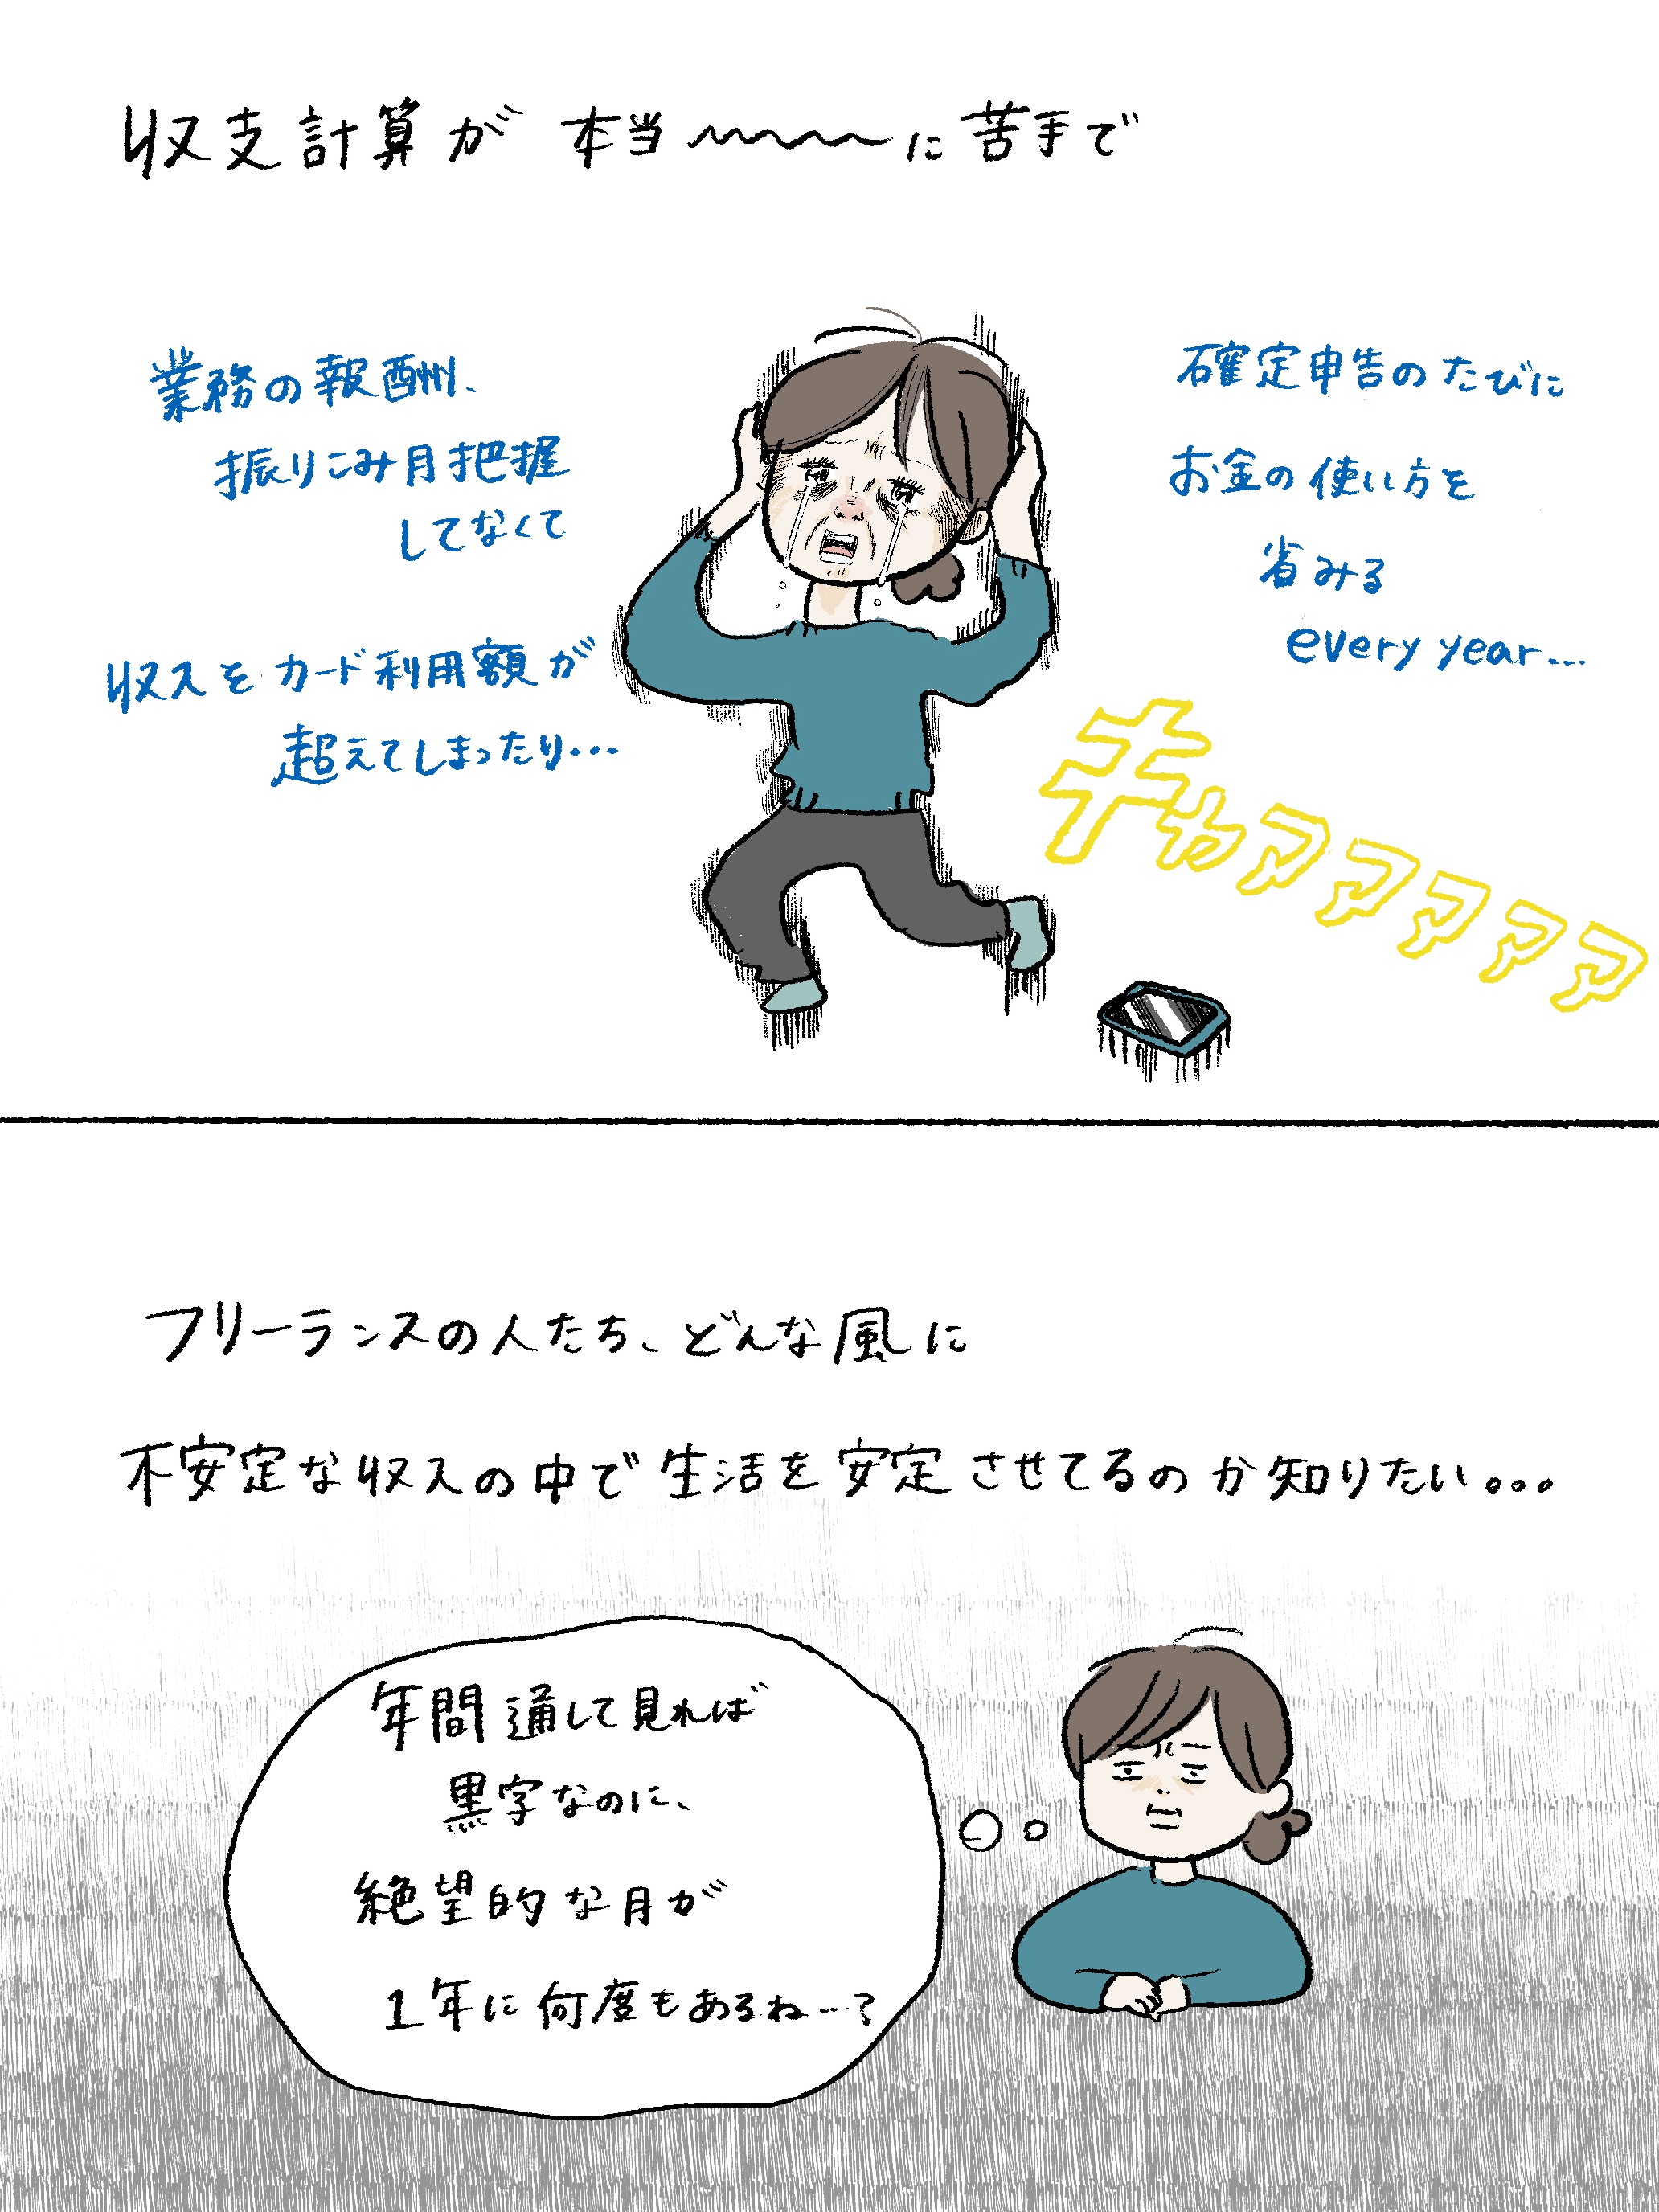 収支計算が 本当〜〜〜〜に苦手で
業務の報酬、
振りこみ月把握
してなくて
収入をカード利用額が
超えてしまったり...
確定申告のたびに
お金の使い方を
省みる
every year...
キャァァァァァ
フリーランスの人たち、どんな風に
不安定な収入の中で生活を安定させてるのか知りたい。。。
年間通して見れば
黒字なのに、
絶望的な月が
1年に何度もあるね...?